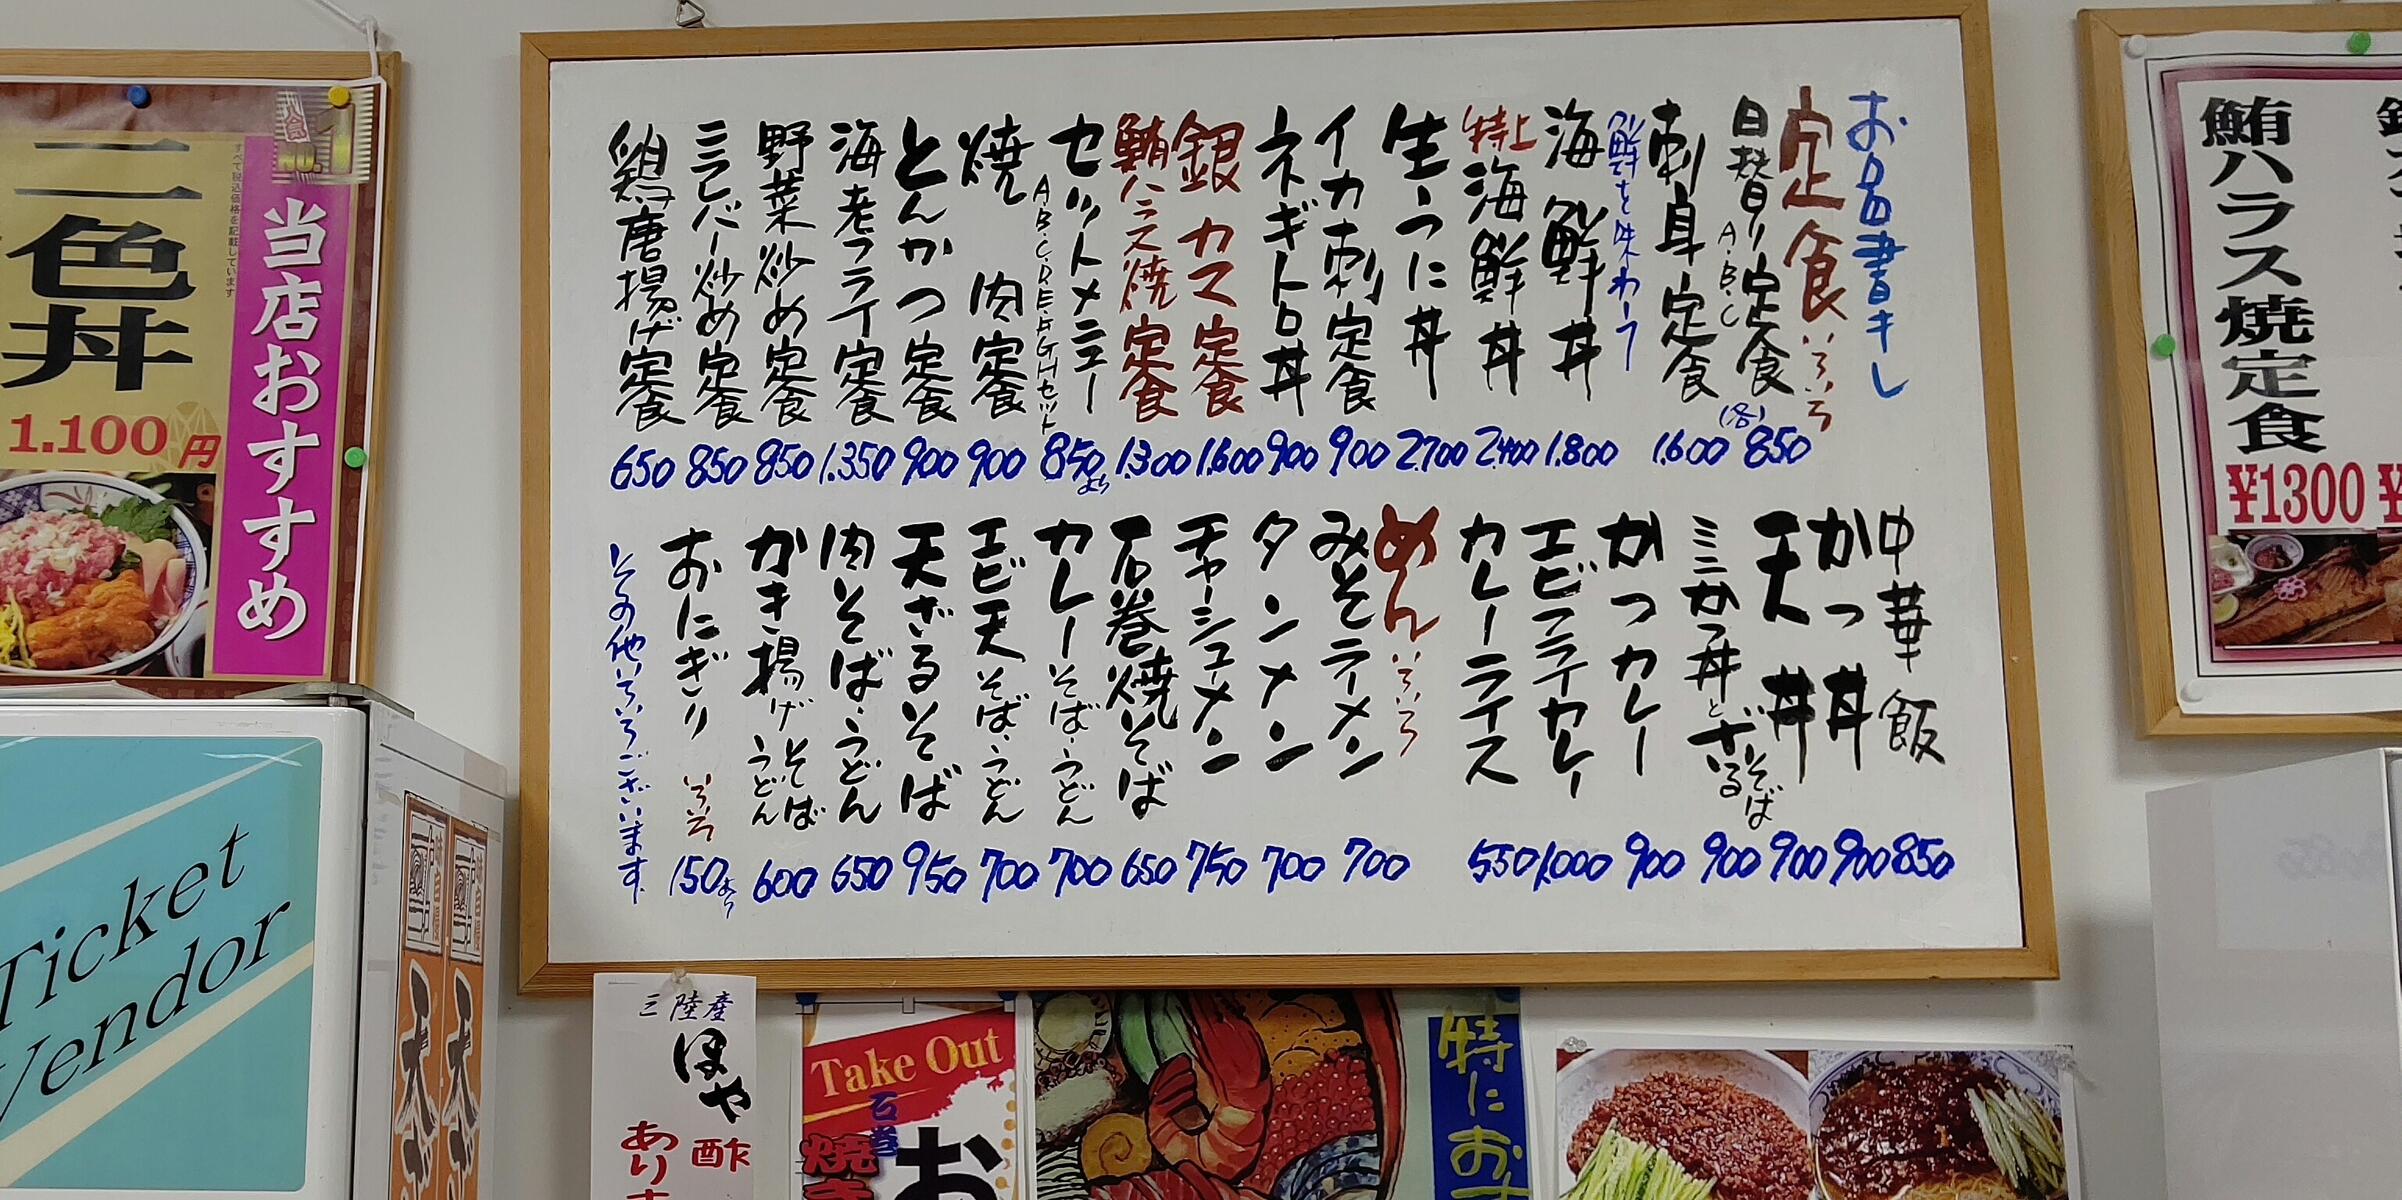 お品書きし
定食いろいろ
日替り定食 A・B・C (各) 850
刺身定食 1.600
海鮮を味わう
海鮮丼 1.800
特上海鮮丼 2.400
生うに丼 2.700
イカ刺定食 900
ネギトロ丼 900
銀カマ定食 1.600
鮪ハラス焼定食 1.300
セットメニュー 850より
A・B・C・D・E・F・G・Hセット
焼肉定食 900
とんかつ定食 900
海老フライ定食 1.350
野菜炒め定食 850
ニラレバー炒め定食 850
鶏唐揚げ定食 650
中華飯 850
かつ丼 900
天丼 900
ミニかつ丼とざるそば 900
かつカレー 900
エビフライカレー 1.000
カレーライス 550
めんいろいろ
みそラーメン 700
タンメン 700
チャーシューメン 750
石巻焼そば 650
カレーそば・うどん 700
エビ天そば・うどん 700
天ざるそば 950
肉そば・うどん 650
かき揚げそばうどん 600
おにぎりいろいろ 150より
その他いろいろございます
人気NO.1
当店おすすめ
すべて税込価格を記載しています
二色丼
1.100円
鮪ハラス焼定食
¥1300
Ticket
Vendor
三陸産
ほや
酢
あり
Take Out
石巻
焼き
お
特にお